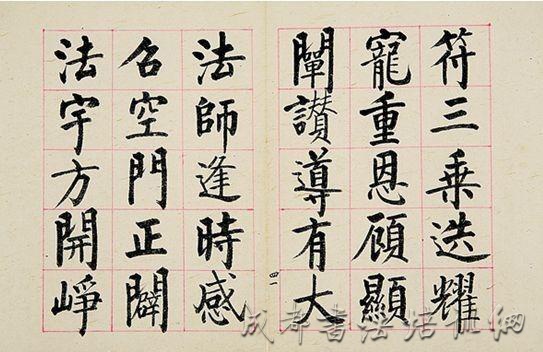 符三乗迭耀
寵重恩顧顯
闡讃導有大
法師逢時感
召空門正闢
法宇方開崢
四一
成都書法培訓網